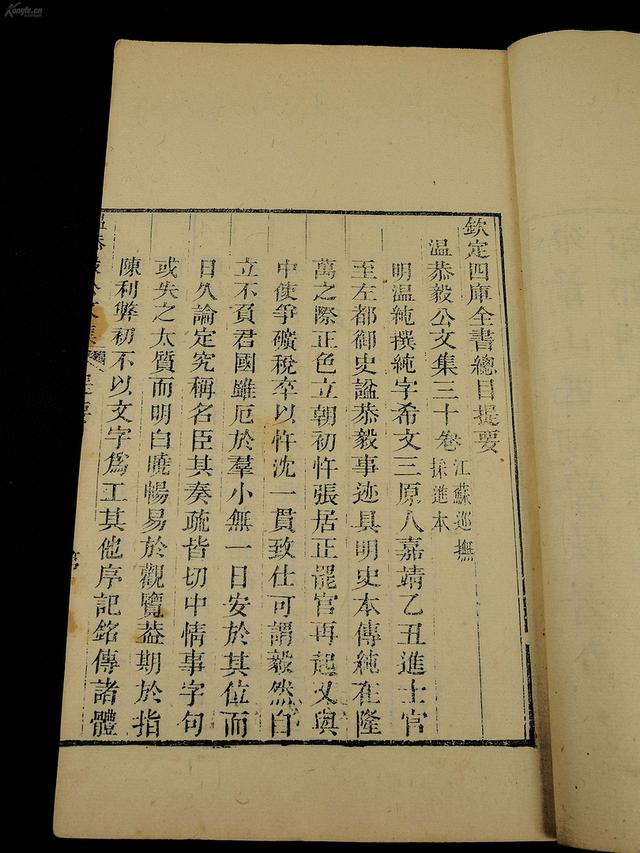 Kongfz.cn
欽定四庫全書總目提要
温恭毅公文集三十卷 江蘇巡撫採進本
明温純撰純字希文三原人嘉靖乙丑進士官
至左都御史諡恭毅事迹具明史本傳純在隆
萬之際正色立朝初忤張居正罷官再起又與
中使爭礦稅卒以忤沈一貫致仕可謂毅然自
立不負君國雖厄於羣小無一日安於其位而
日久論定究稱名臣其奏疏皆切中情事字句
或失之太質而明白曉暢易於觀覽葢期於指
陳利弊初不以文字爲工其他序記銘傳諸體